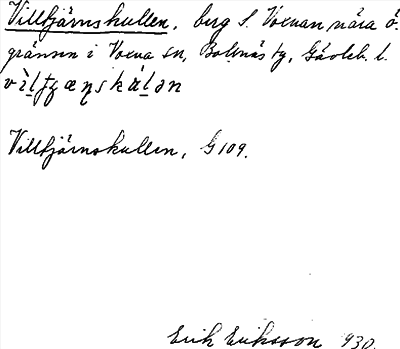 Villtjärnskullen, berg S. Voxnan nära ö.
gränsen i Voxna sn, Bollnäs tg, Gävleb. l.
Villtjärnskullen, G 109.
Erik Eriksson 930.